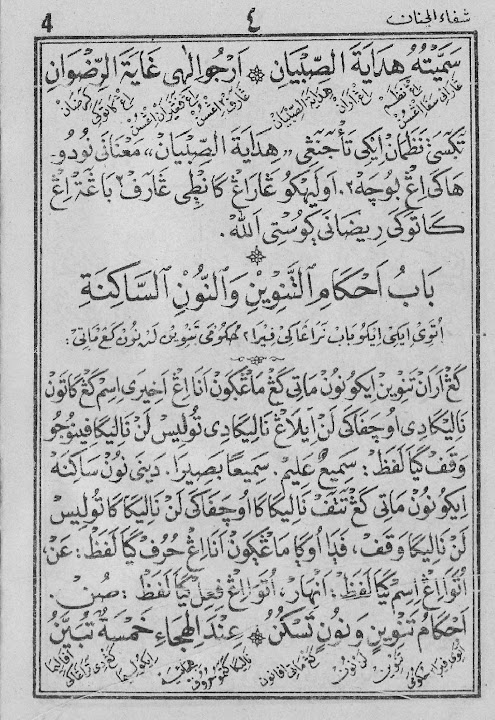 شفاء الجنان ٤ 4
سَمَّيْتُهُ هِدَايَةَ الصِّبْيَانِ ۞ أَرْجُو إِلٰهِي غَايَةَ الرِّضْوَانِ
هداية الصبيان
تكسى نظمان ايكى تأجنڠى «هِدَايَةَ الصِّبْيَانِ» معنانى نودو-
هاكى اڠ بوچه٢. اوليهكو ڠارڠ كانطى ڠارف٢ باڠة اڠ
كاتوكى ريضانى ݢوستى الله.
بَابُ أَحْكَامِ التَّنْوِيْنِ وَالنُّوْنِ السَّاكِنَةِ
اتوى ايكى ايكو باب نراڠاكى فيرا٢ حكومى تنوين لن نون كڠ ماتى:
كڠ اران تنوين ايكو نون ماتى كڠ ماڠݢون انا اڠ اخيرى اسم كڠ كاتون
ناليكا دى اوچفاكى لن ايلاڠ ناليكا دى توليس لن ناليكا فينوجو
وقف كيا لفظ: سَمِيْعٌ عَلِيْمٌ. سَمِيْعًا بَصِيْرًا. دينى نون ساكنه
ايكو نون ماتى كڠ تتف ناليكا كا اوچفاكى لن ناليكا كا توليس
لن ناليكا وقف، فدا اوݢا ماڠݢون انا اڠ حروف كيا لفظ: عَنْ،
اتوا اڠ اسم كيا لفظ: اَنْهَار، اتوا اڠ فعل كيا لفظ: صُنْ.
أَحْكَامُ تَنْوِيْنٍ وَنُوْنٍ تَسْكُنُ ۞ عِنْدَ الْهِجَاءِ خَمْسَةٌ تُبَيَّنُ